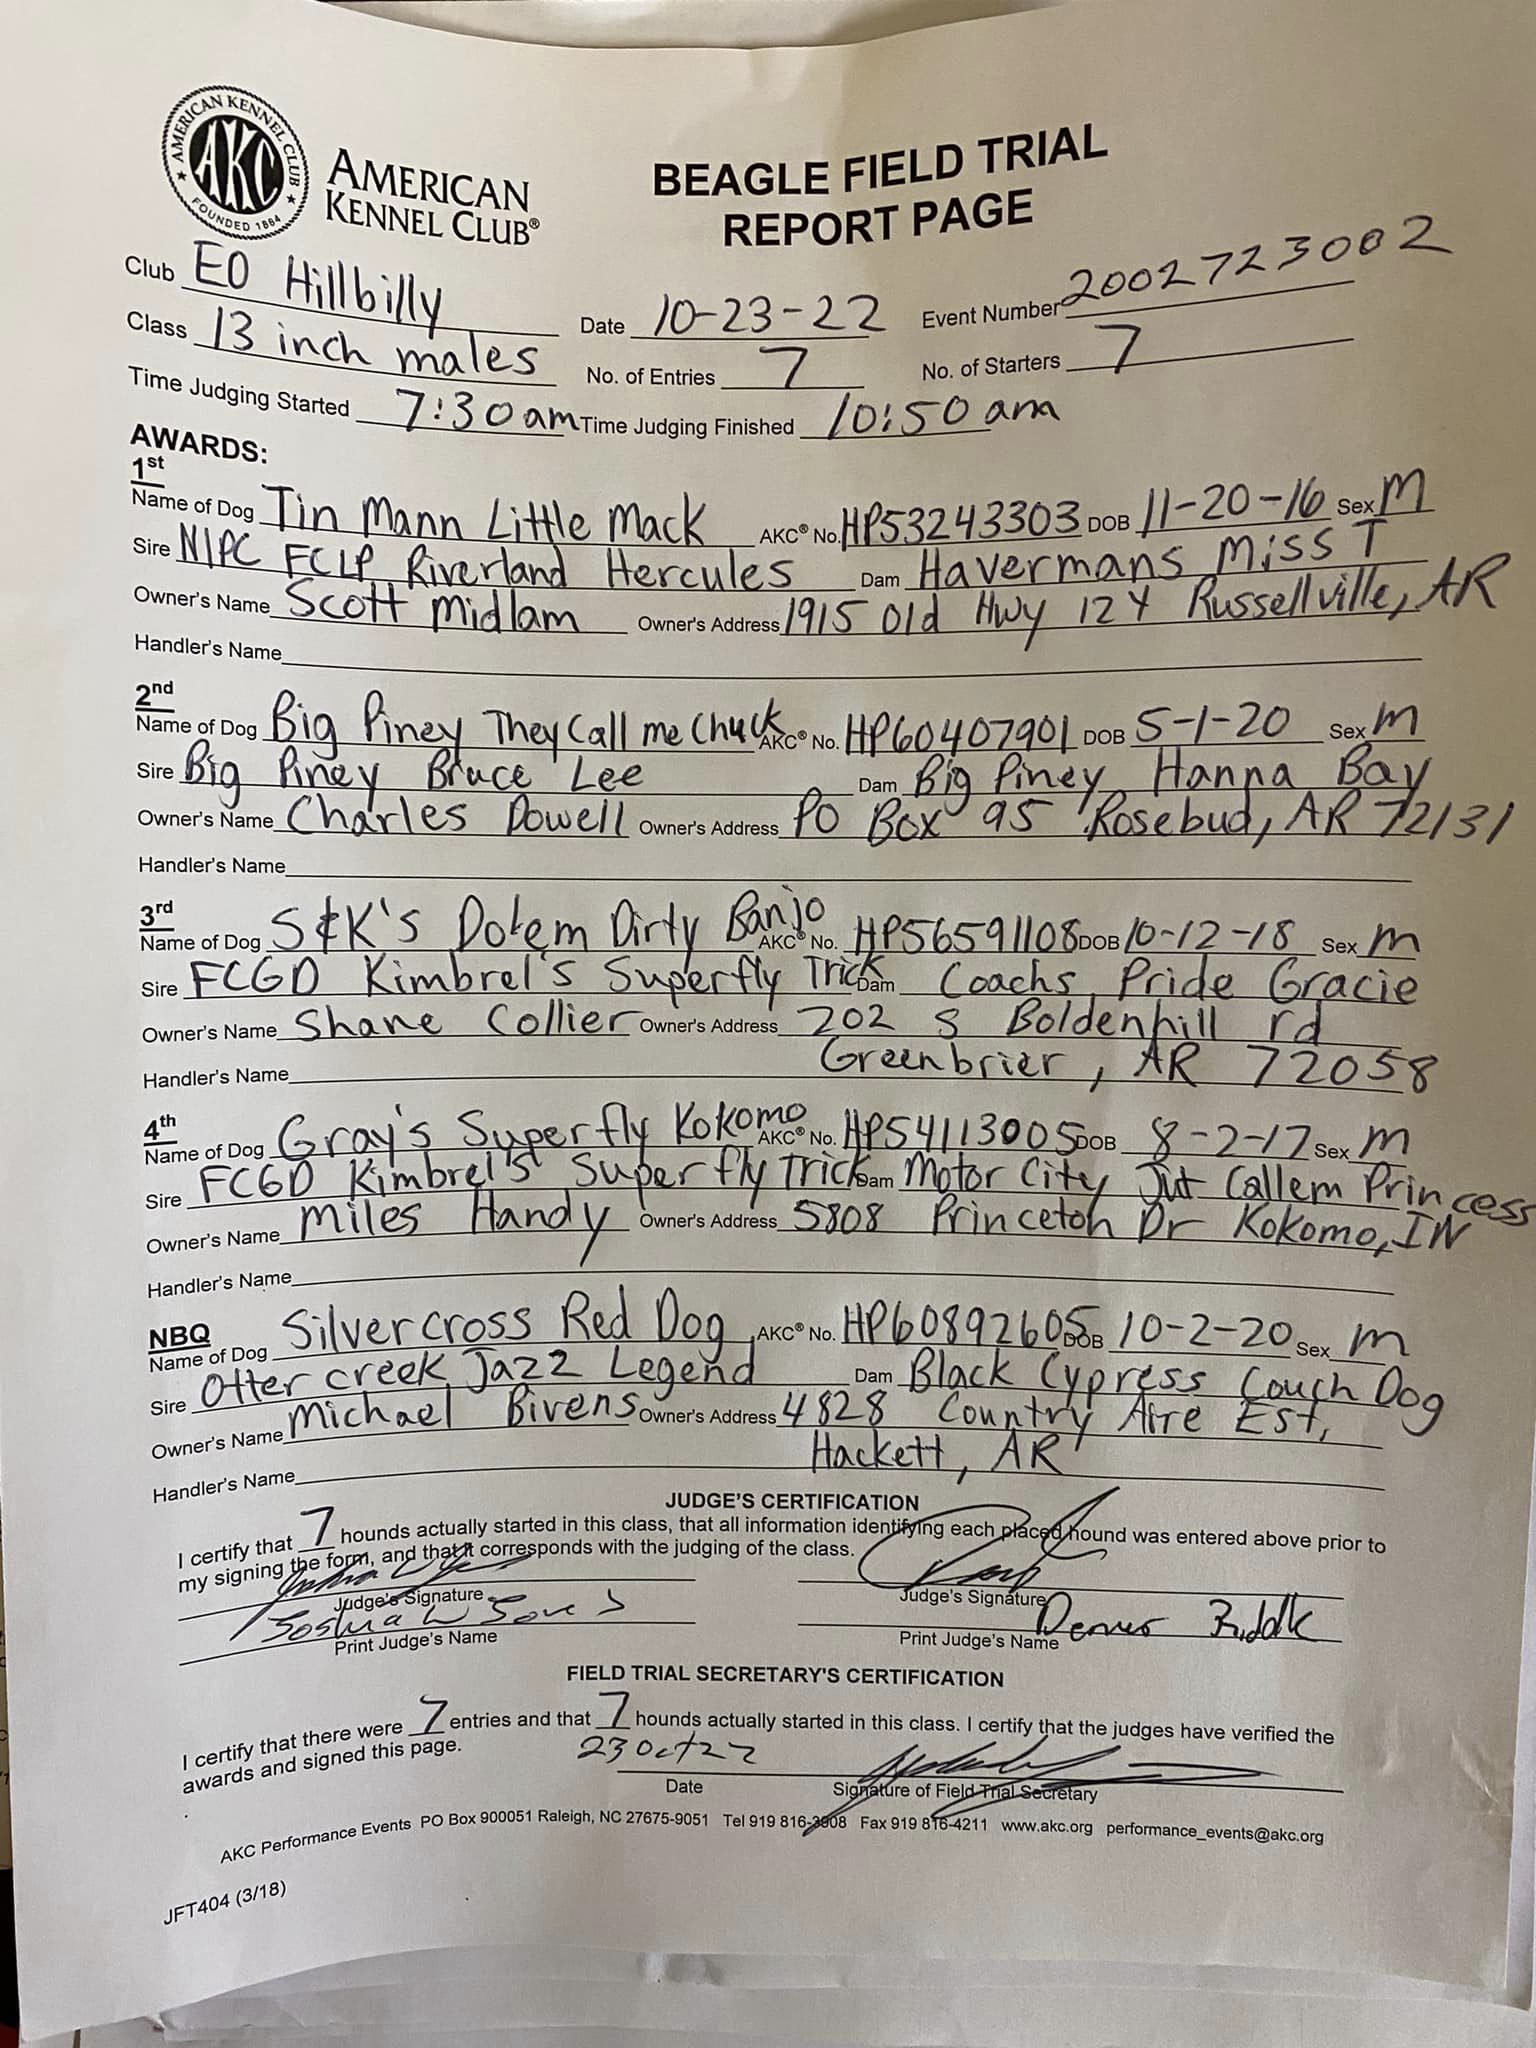 AMERICAN KENNEL CLUB
AKC
FOUNDED 1884
AMERICAN
KENNEL CLUB®
BEAGLE FIELD TRIAL
REPORT PAGE
Club EO Hillbilly Date 10-23-22 Event Number 2002723002
Class 13 inch males No. of Entries 7 No. of Starters 7
Time Judging Started 7:30am Time Judging Finished 10:50 am
AWARDS:
1st
Name of Dog Tin Mann Little Mack AKC® No. HP53243303 DOB 11-20-16 Sex M
Sire NIPC FCLP Riverland Hercules Dam Havermans Miss T
Owner's Name Scott Midlam Owner's Address 1915 Old Hwy 124 Russellville, AR
Handler's Name
2nd
Name of Dog Big Piney They Call me Chuck AKC® No. HP60407901 DOB 5-1-20 Sex M
Sire Big Piney Bruce Lee Dam Big Piney Hanna Bay
Owner's Name Charles Dowell Owner's Address PO Box 95 Rosebud, AR 72131
Handler's Name
3rd
Name of Dog S&K's Dotem Dirty Banjo AKC® No. HP56591108 DOB 10-12-18 Sex M
Sire FCGD Kimbrel's Superfly Trick Dam Coachs Pride Gracie
Owner's Name Shane Collier Owner's Address 202 S Boldenhill rd
Greenbrier, AR 72058
Handler's Name
4th
Name of Dog Gray's Superfly Kokomo AKC® No. HP54113005 DOB 8-2-17 Sex M
Sire FCGD Kimbrel's Superfly Trick Dam Motor City Jut Callem Princess
Owner's Name Miles Handy Owner's Address 5808 Princeton Dr Kokomo, IN
Handler's Name
NBQ
Name of Dog Silvercross Red Dog AKC® No. HP60892605 DOB 10-2-20 Sex M
Sire Otter creek Jazz Legend Dam Black Cypress Couch Dog
Owner's Name Michael Bivens Owner's Address 4828 Country Aire Est,
Hackett, AR
Handler's Name
JUDGE'S CERTIFICATION
I certify that 7 hounds actually started in this class, that all information identifying each placed hound was entered above prior to
my signing the form, and that it corresponds with the judging of the class.
Judge's Signature Judge's Signature
Joshua W Jones Denver
Print Judge's Name Print Judge's Name
FIELD TRIAL SECRETARY'S CERTIFICATION
I certify that there were 7 entries and that 7 hounds actually started in this class. I certify that the judges have verified the
awards and signed this page.
23 Oct 22
Date Signature of Field Trial Secretary
AKC Performance Events PO Box 900051 Raleigh, NC 27675-9051 Tel 919 816-3908 Fax 919 816-4211 www.akc.org performance_events@akc.org
JFT404 (3/18)